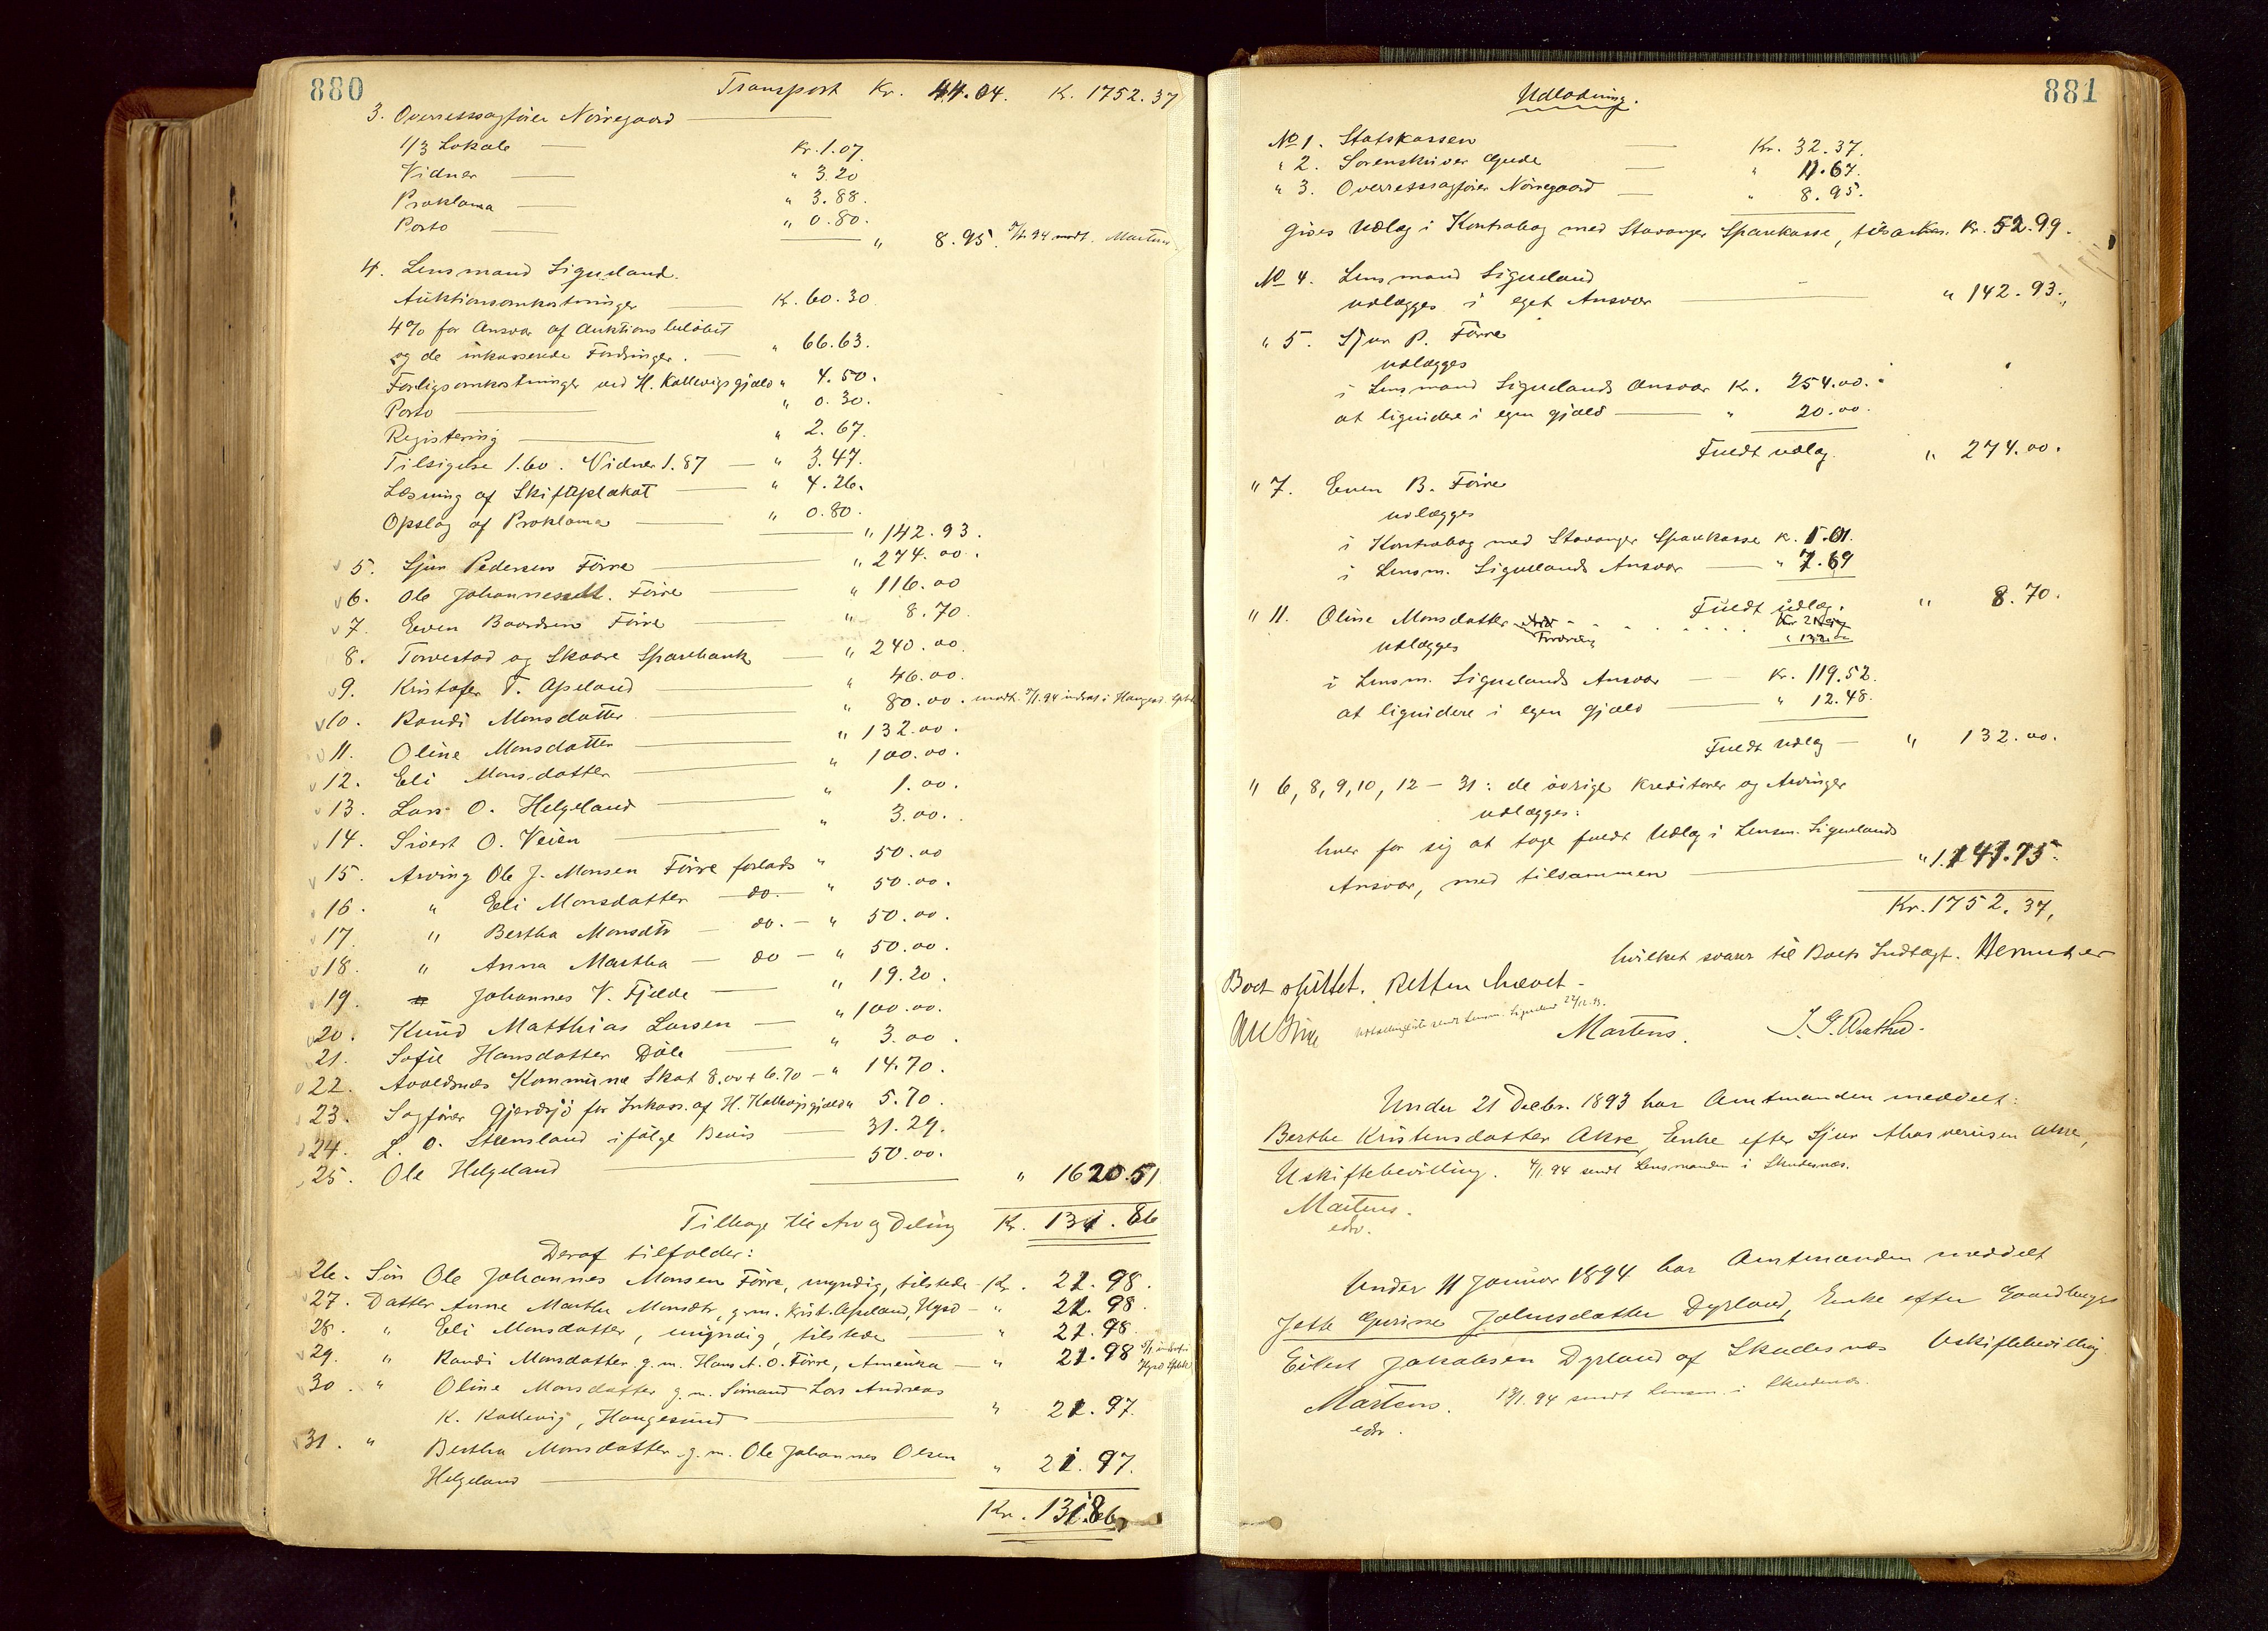 880
Transport Kr. 44.04. Kr. 1752.37
3. Overretssagfører Nörregaard
1/3 Lokale Kr. 1.07.
Vidner " 3.20
Proklama " 3.88.
Porto " 0.80.
" 8.95. modt. Martens
4. Lensmand Sigveland.
Auktionsomkostninger K. 60.30.
4% for Ansvar af Auktionsbeløbet
og de inkasserede Fordringer. " 66.63.
Forligsomkostninger ved H. Kallevigs gjæld " 4.50.
Porto " 0.30.
Registering " 2.67.
Tilsigelse 1.60. Vidner 1.87 " 3.47.
Læsning af Skifteplakat " 4.26.
Opslag af Proklama " 0.80.
" 142.93.
5. Sjur Pedersen Förre " 274.00.
6. Ole Johannes Förre " 116.00
7. Even Baardsen Förre " 8.70.
8. Torvestad og Skaare Sparebank " 240.00.
9. Kristofer T. Apeland " 46.00.
10. Randi Monsdatter " 80.00. modt. 94 indsat i Hauges.
11. Oline Monsdatter " 132.00.
12. Eli Monsdatter " 100.00.
13. Lars O. Helgeland " 1.00.
14. Sivert O. Veien " 3.00.
15. Arving Ole J. Monsen Förre forlods " 50.00
16. " Eli Monsdatter do. " 50.00.
17. " Bertha Monsdtr do. " 50.00.
18. " Anna Martha do " 50.00.
19. Johannes V. Fjelde " 19.20.
20. Knud Matthias Larsen " 100.00.
21. Sofie Hansdatter Dale " 3.00.
22. Avaldsnæs Kommune Skat 8.00 + 6.70 " 14.70.
23. Sagfører Gjerdsjö for Inkass. af H. Kallevigs gjæld " 5.70.
24. L. O. Steensland ifølge Bevis 31.29.
25. Ole Helgeland 50.00.
" 1620.51
Tilbage til Arv og Deling Kr. 131.86
Deraf tilfalder:
26. Sön Ole Johannes Monsen Förre, myndig, tilstede Kr. 21.98.
27. Datter Anne Martha Monsdtr, g.m. Krist. Apeland, Hgsd " 21.98.
28. " Eli Monsdatter, myndig, tilstede " 21.98.
29. " Randi Monsdatter g.m. Hans A. O. Förre, Amerika " 21.98
30. " Oline Monsdatter g.m. Sömand Lars Andreas
K. Kallevig, Haugesund " 21.97.
31. " Bertha Monsdatter g.m. Ole Johannes Olsen
Helgeland " 21.97.
Kr. 131.86
881
Udlodning.
No 1. Statskassen Kr. 32.37.
" 2. Sorenskriver Gude " 11.67.
" 3. Overretssagfører Nörregaard " 8.95.
gives Udlæg i Kontrabog med Stavanger Sparekasse, tilsammen Kr. 52.99.
No 4. Lensmand Sigveland
udlægges i eget Ansvar " 142.93.
" 5. Sjur P. Förre
udlægges
i Lensmand Sigvelands Ansvar Kr. 254.00.
at liquidere i egen gjæld " 20.00.
Fuldt udlæg. " 274.00.
" 7. Even B. Förre
udlægges
i Kontrabog med Stavanger Sparekasse K. 1.01.
i Lensm. Sigvelands Ansvar " 7.69
Fuldt udlæg. " 8.70.
" 11. Oline Monsdatter
udlægges Fordring
i Lensm. Sigvelands Ansvar Kr. 119.52.
at liquidere i egen gjæld " 12.48.
Fuldt Udlæg " 132.00.
" 6, 8, 9, 10, 12 – 31: de övrige Kreditorer og Arvinger
udlægges:
hver for sig at tage fuldt Udlæg i Lensm. Sigvelands
Ansvar, med tilsammen " 1.141.75.
Kr. 1752.37.
hvilket svarer til Boets Indtægt. Hermed er
Boet sluttet. Retten hævet.
Martens.
Under 21 Decbr. 1893 har Amtmanden meddelt:
Berthe Kristensdatter Akre, Enke efter Sjur Ahasverusen Akre,
Uskiftebevilling. 4/1 94 sendt Lensmanden i Skudesnæs.
Martens.
edv.
Under 11 Januar 1894 har Amtmanden meddelt
Jette Gurine Johnsdatter Dyrland, Enke efter Gaardbruger
Eilert Jakobsen Dyrland af Skudesnæs Uskiftebevilling.
Martens. 13/1 94 sendt Lensm. i Skudesnæs.
edv.